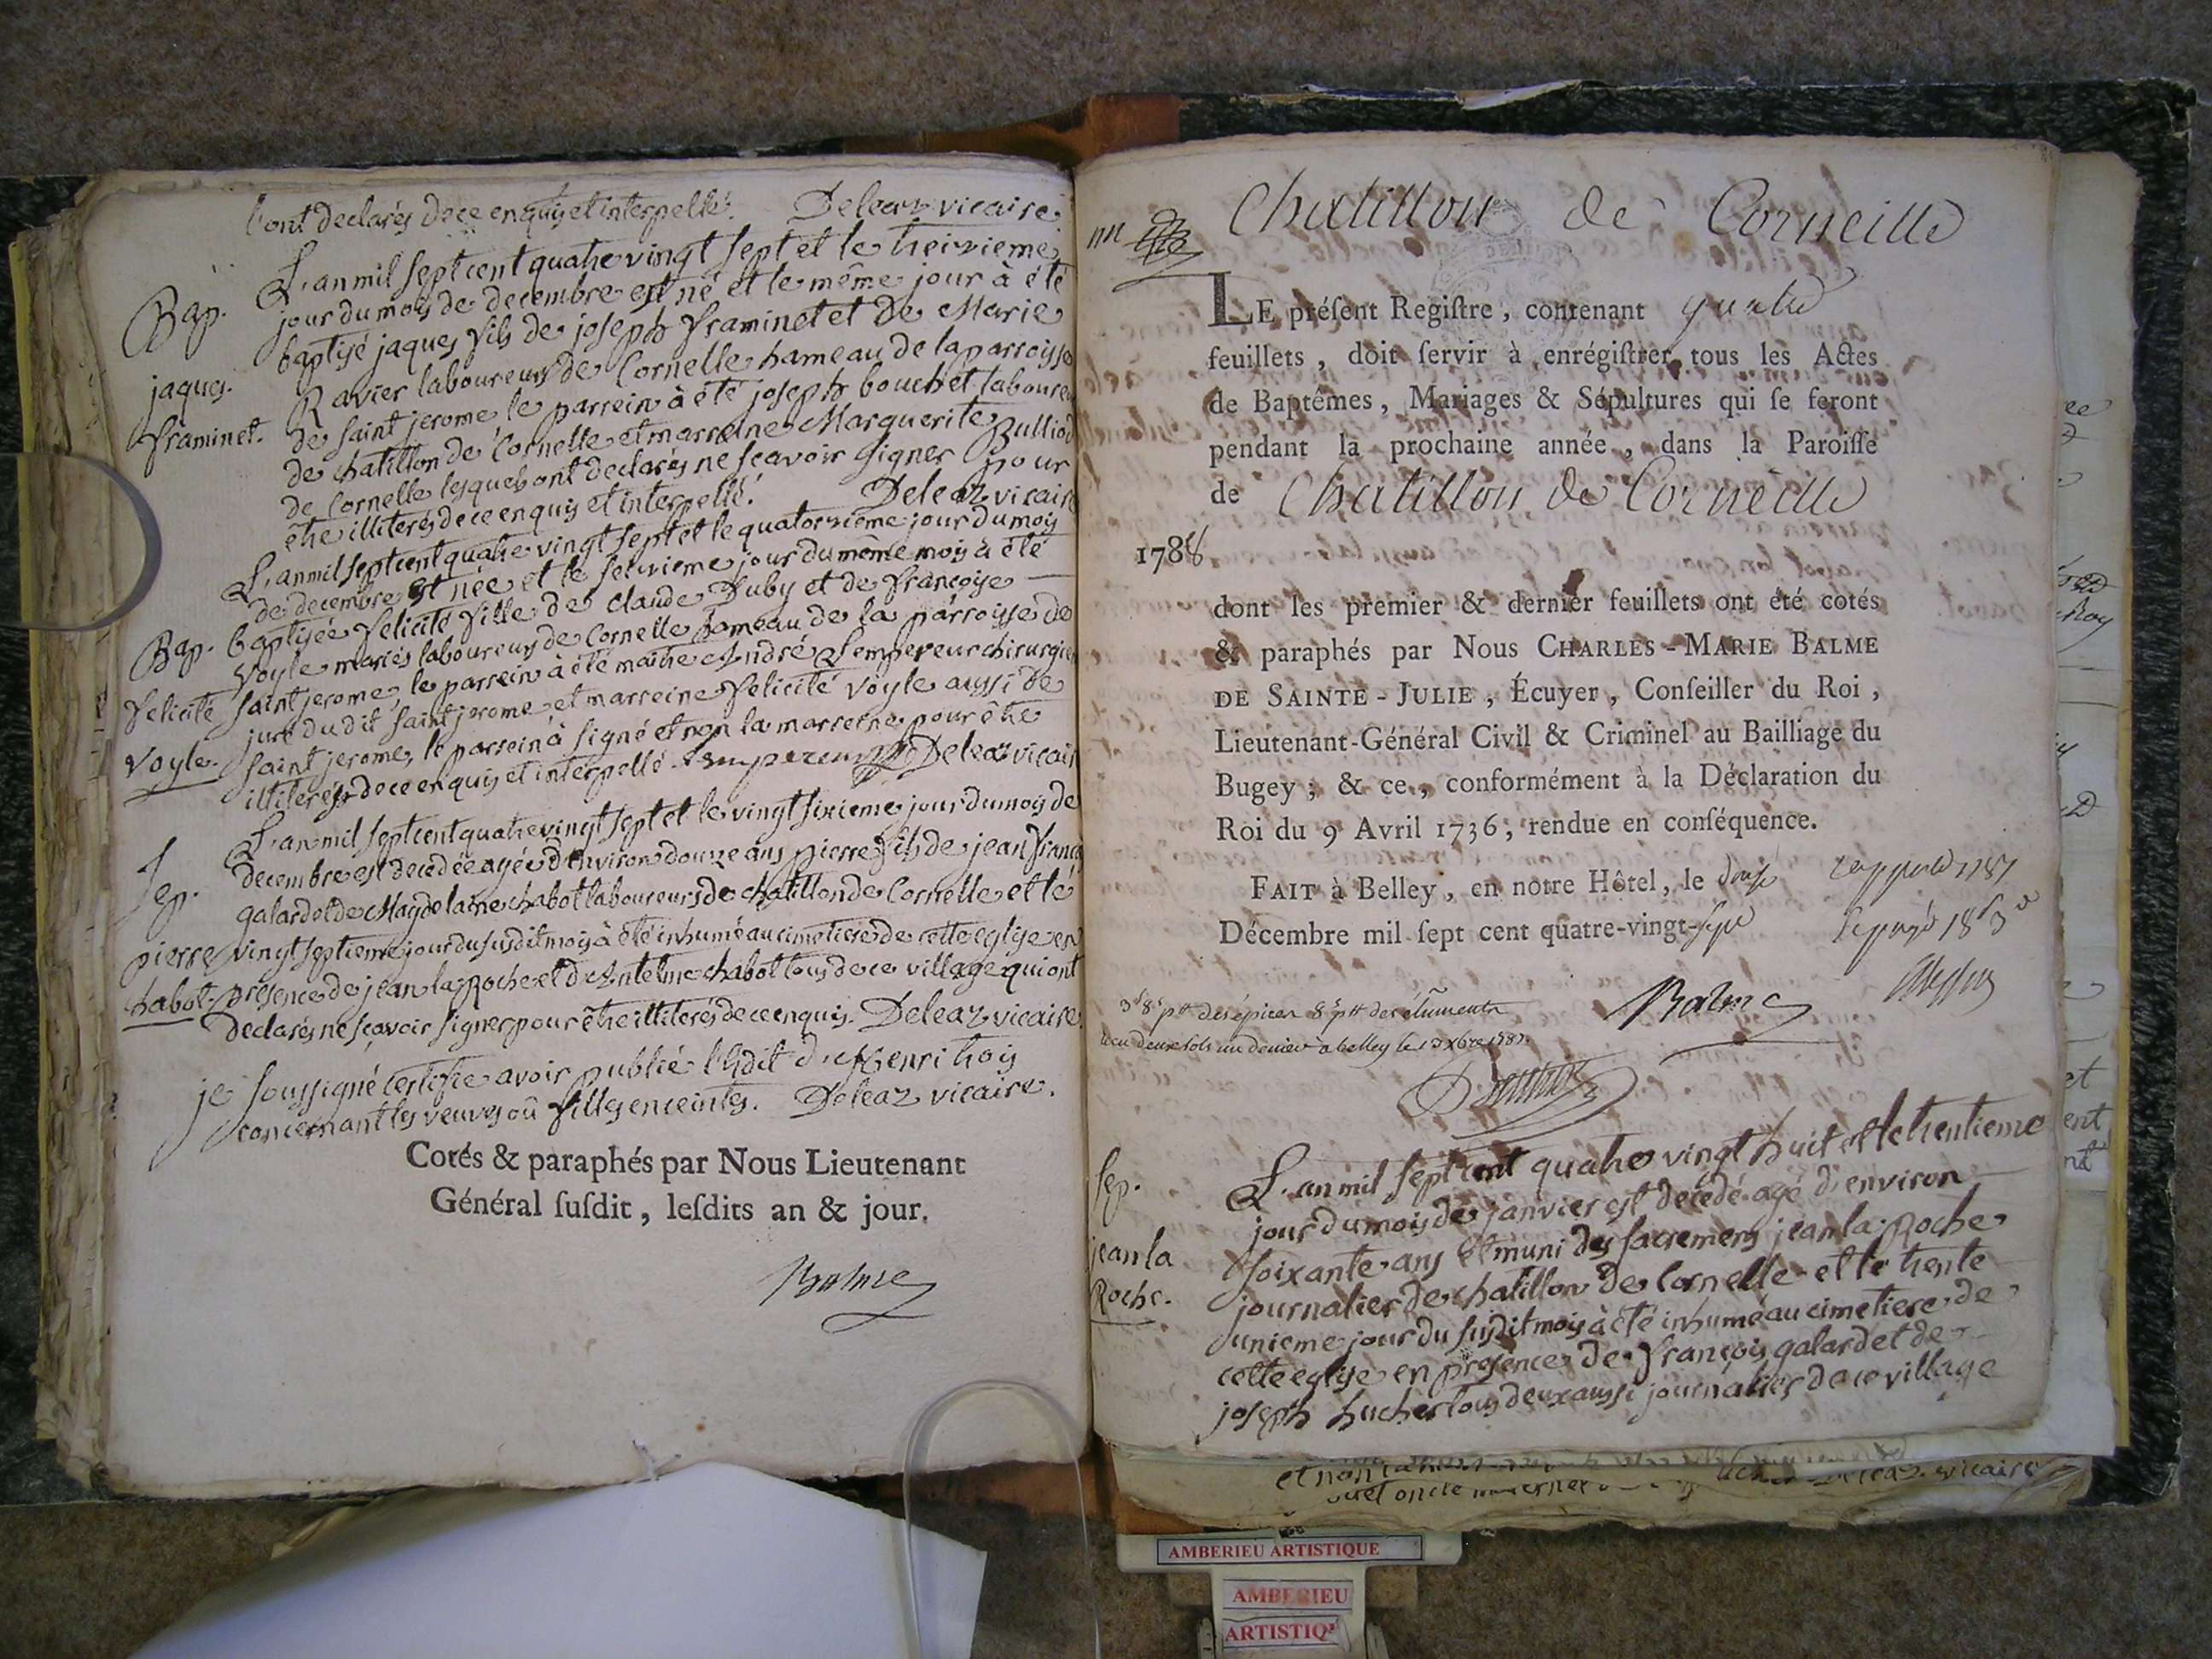 l'ont declarés de ce enquis et interpellé. Deleaz vicaire.
L'an mil sept cent quatre vingt sept et le treizieme
jour du mois de decembre est né et le même jour à été
baptisé jaques fils de joseph framinet et de Marie
Ravier laboureurs de Cornelle hameau de la parroisse
de saint jerome, le parrein à été joseph bouchet laboureu
de chatillon de Cornelle et marreine Marguerite Bulliod
de Cornelle lesquels ont declarés ne scavoir signer pour
être illiterés de ce enquis et interpellé. Deleaz vicaire
Bap.
jaques.
framinet.
L'an mil sept cent quatre vingt sept et le quatorzieme jour du mois
de decembre est née et le seizieme jour du même mois à été
baptisée felicité fille de claude Duby et de françoise
Voyle mariés laboureurs de Cornelle hameau de la parroisse de
saint jerome, le parrein à été maitre André Lempereur chirurgien
juré du dit saint jerome et marreine felicité voyle aussi de
saint jerome, le parrein à signé et non la marreine pour être
illiterés de ce enquis et interpellé. Lempereur Deleaz vicair
Bap.
felicité
voyle.
L'an mil sept cent quatre vingt sept et le vingt sixieme jour du mois de
decembre est decedée agée d'environ douze ans pierre fils de jean françois
galard et de Magdelaine chabot laboureurs de chatillon de Cornelle et le
vingt septieme jour du susdit mois à été inhumé au cimetiere de cette eglise en
présence de jean la Roche et d'Antelme chabot tous de ce village qui ont
declarés ne sçavoir signer pour être illiterés de ce enquis. Deleaz vicaire.
Sep.
pierre
habot.
je soussigné certifie avoir publié l'Edit d'Henri trois
concernant les veuves où filles enceintes. Deleaz vicaire.
Cotés & paraphés par Nous Lieutenant
Général ſuſdit, leſdits an & jour.
Balme
Chatillon de Corneille
LE préſent Regiſtre, contenant quatre
feuillets, doit ſervir à enrégiſtrer tous les Actes
de Baptêmes, Mariages & Sépultures qui ſe feront
pendant la prochaine année, dans la Paroiſſe
de Chatillon de Corneille
1788
dont les premier & dernier feuillets ont été cotés
& paraphés par Nous CHARLES-MARIE BALME
DE SAINTE-JULIE, Écuyer, Conſeiller du Roi,
Lieutenant-Général Civil & Criminel au Bailliage du
Bugey; & ce, conformément à la Déclaration du
Roi du 9 Avril 1736, rendue en conſéquence.
FAIT à Belley, en notre Hôtel, le douze
Décembre mil ſept cent quatre-vingt-sept
Balme
recu deux sols un denier a belley le 13 xbre 1787.
L'an mil sept cent quatre vingt huit et le trentieme
jour du mois de janvier est decedé agé d'environ
soixante ans et muni des sacremens jean la Roche
journalier de chatillon de Cornelle et le trente
unieme jour du susdit mois à été inhumé au cimetiere de
cette eglise en presence de françois galard et de
joseph hucher tous deux aussi journaliers de ce village
Sep.
jean la
Roche.
AMBERIEU ARTISTIQUE
AMBERIEU
ARTISTIQ